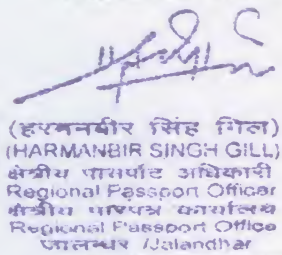 (हरमनबीर सिंह गिल)
(HARMANBIR SINGH GILL)
क्षेत्रीय पासपोर्ट अधिकारी
Regional Passport Officer
क्षेत्रीय पारपत्र कार्यालय
Regional Passport Office
जालन्धर /Jalandhar